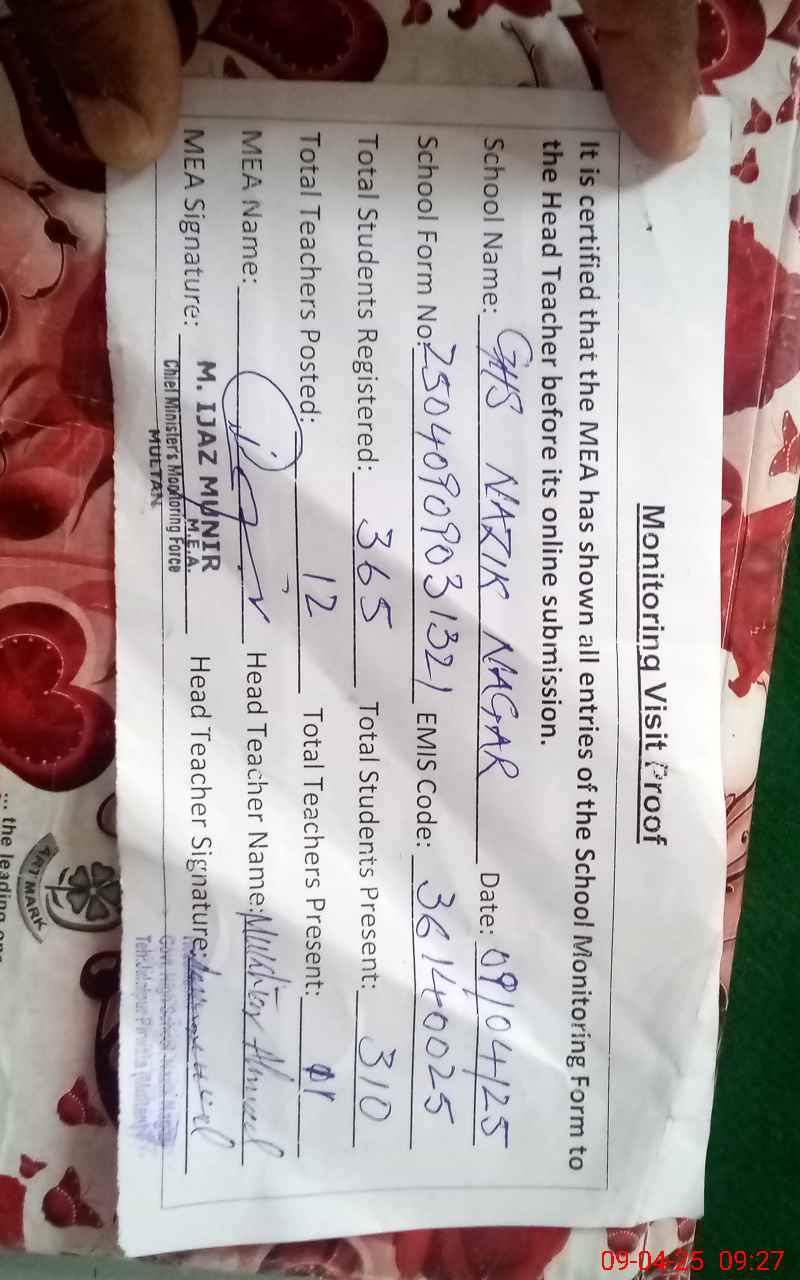 Monitoring Visit Proof
It is certified that the MEA has shown all entries of the School Monitoring Form to
the Head Teacher before its online submission.
School Name: GHS NAZIK NAGAR Date: 09/04/25
School Form No: 25040909031321 EMIS Code: 36140025
Total Students Registered: 365 Total Students Present: 310
Total Teachers Posted: 12 Total Teachers Present:
MEA Name: Head Teacher Name:
M. IJAZ MUNIR
M.E.A.
MEA Signature: Head Teacher Signature:
Chief Minister's Monitoring Force
MULTAN
PHT MARK
... the leading
09-04-25 09:27